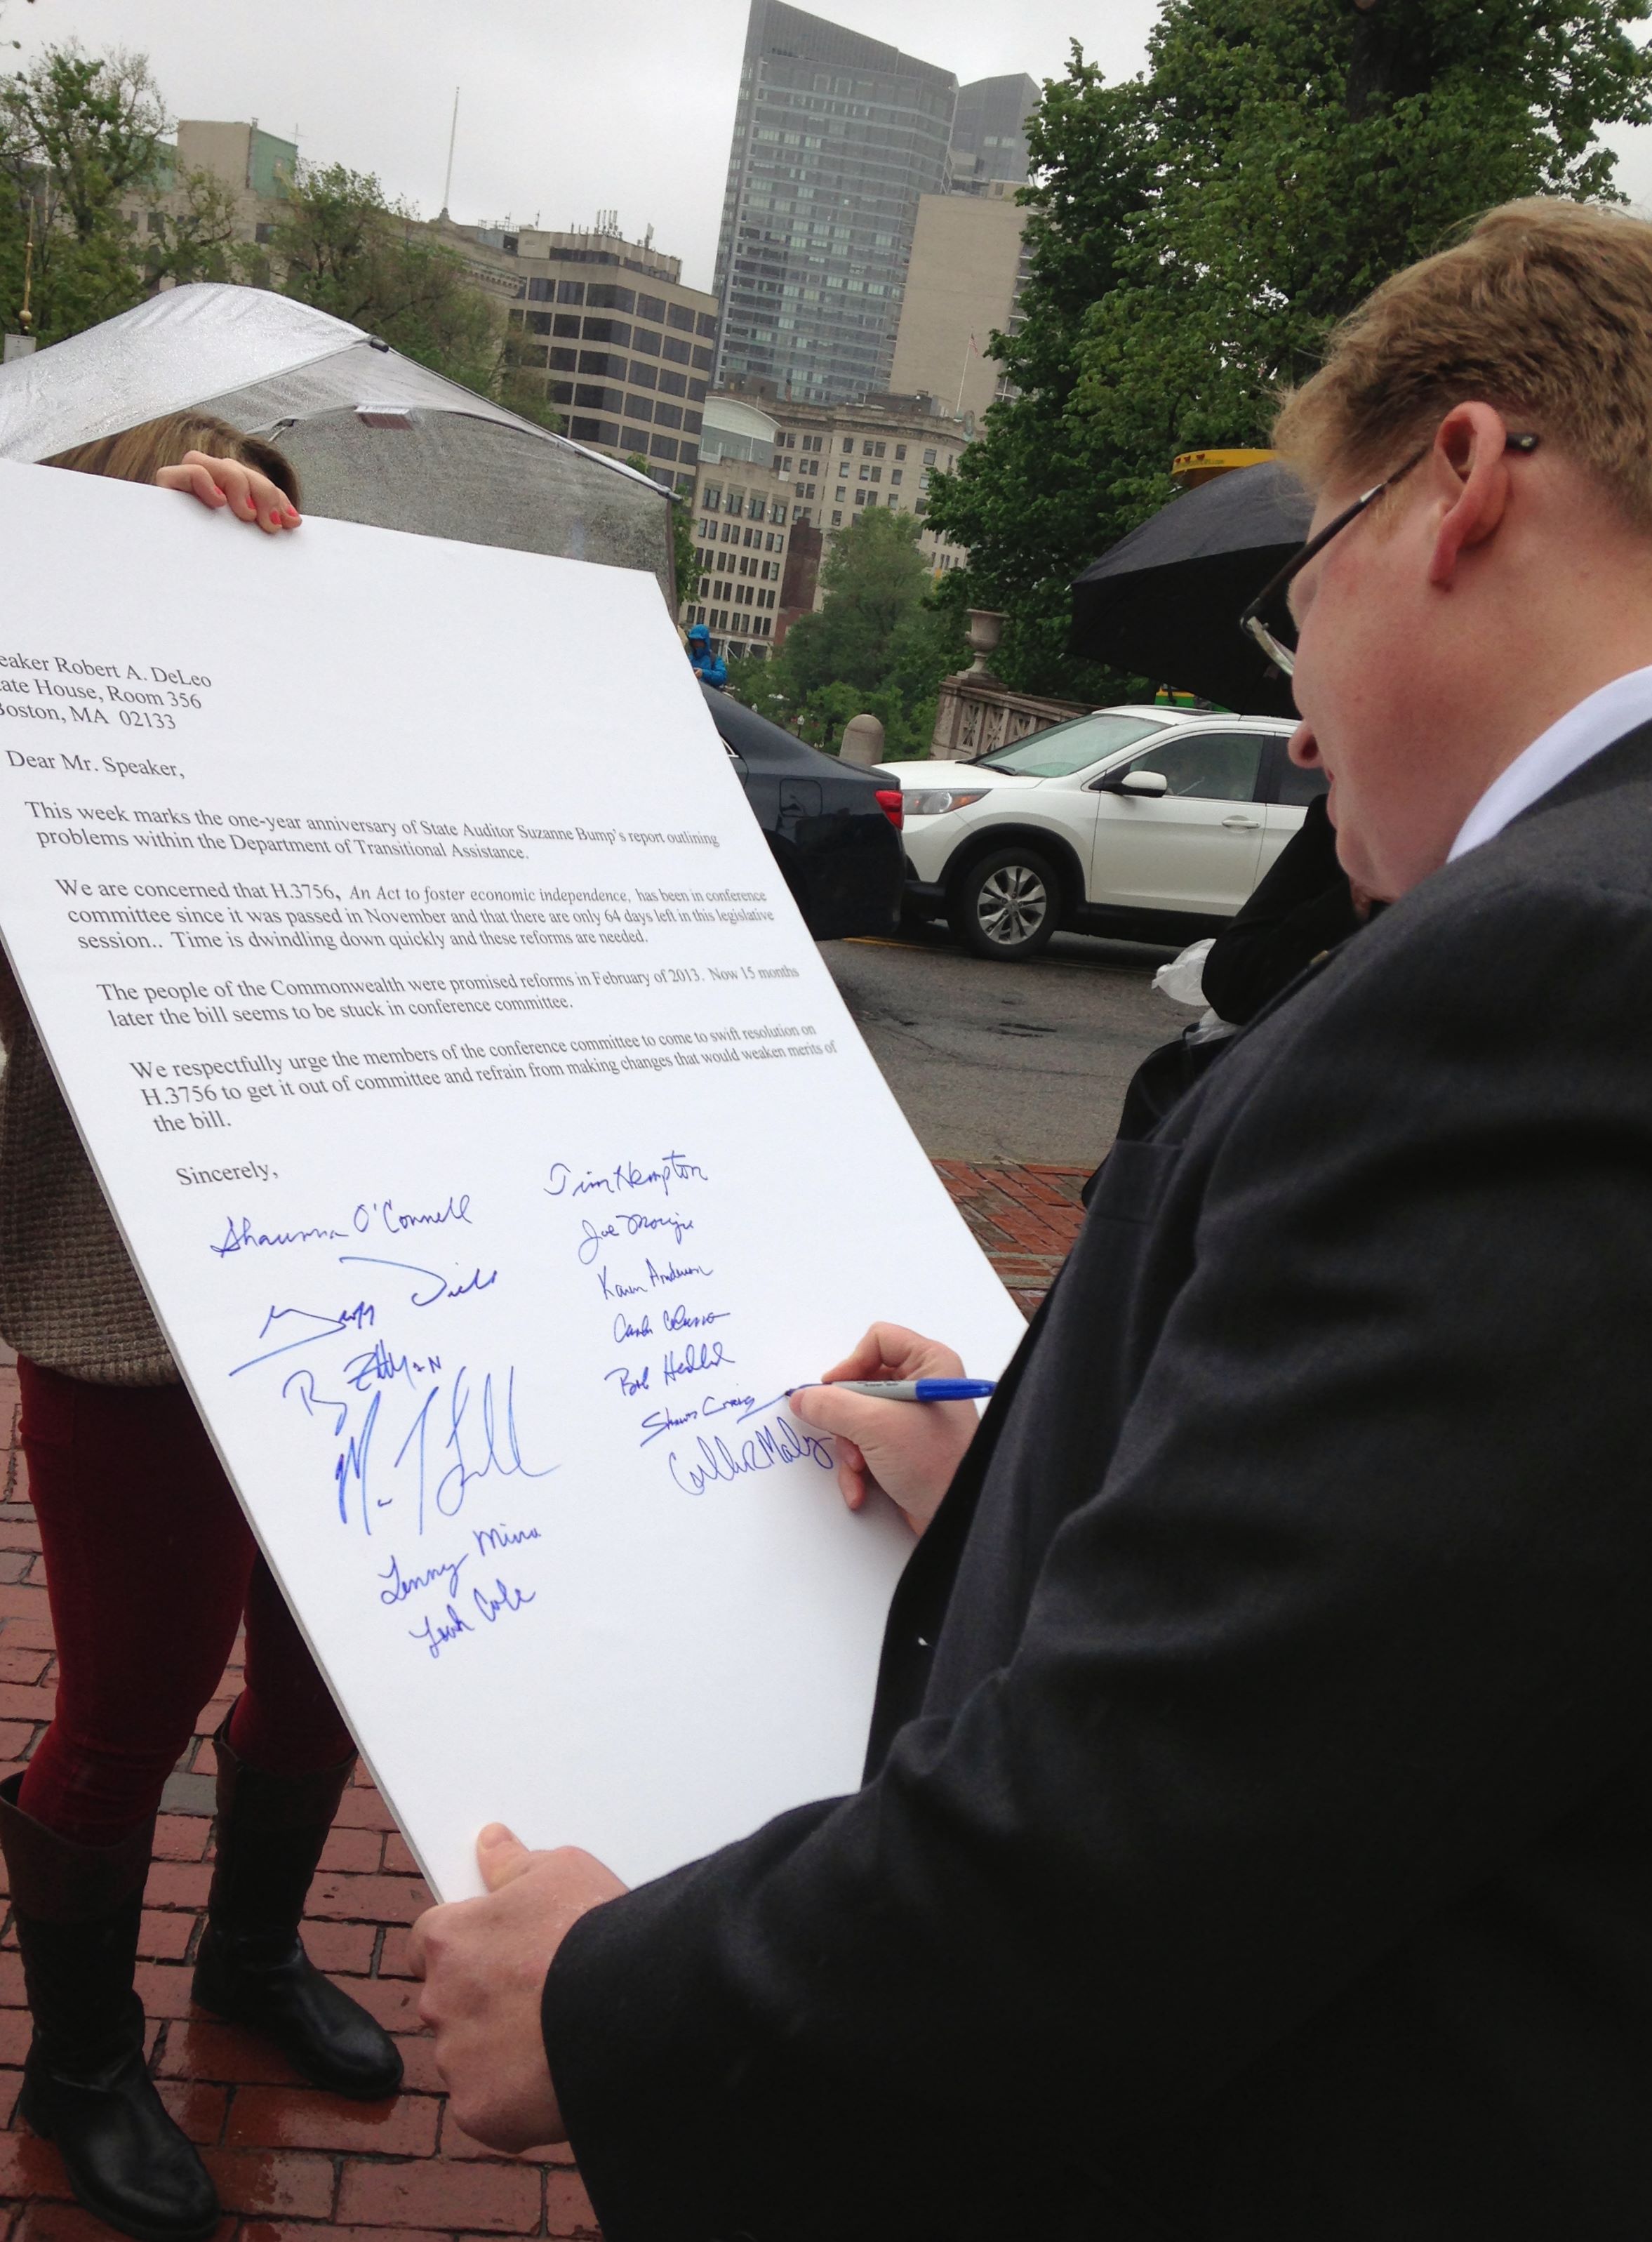 eaker Robert A. DeLeo
ate House, Room 356
Boston, MA 02133
Dear Mr. Speaker,
This week marks the one-year anniversary of State Auditor Suzanne Bump's report outlining
problems within the Department of Transitional Assistance.
We are concerned that H.3756, An Act to foster economic independence, has been in conference
committee since it was passed in November and that there are only 64 days left in this legislative
session.. Time is dwindling down quickly and these reforms are needed.
The people of the Commonwealth were promised reforms in February of 2013. Now 15 months
later the bill seems to be stuck in conference committee.
We respectfully urge the members of the conference committee to come to swift resolution on
H.3756 to get it out of committee and refrain from making changes that would weaken merits of
the bill.
Sincerely,
Shaunna O'Connell
Geoff Diehl
Lenny Mirra
Leah Cole
Tim Hempton
Joe
Karen Anderson
Bob Hedlund
Shawn Craig